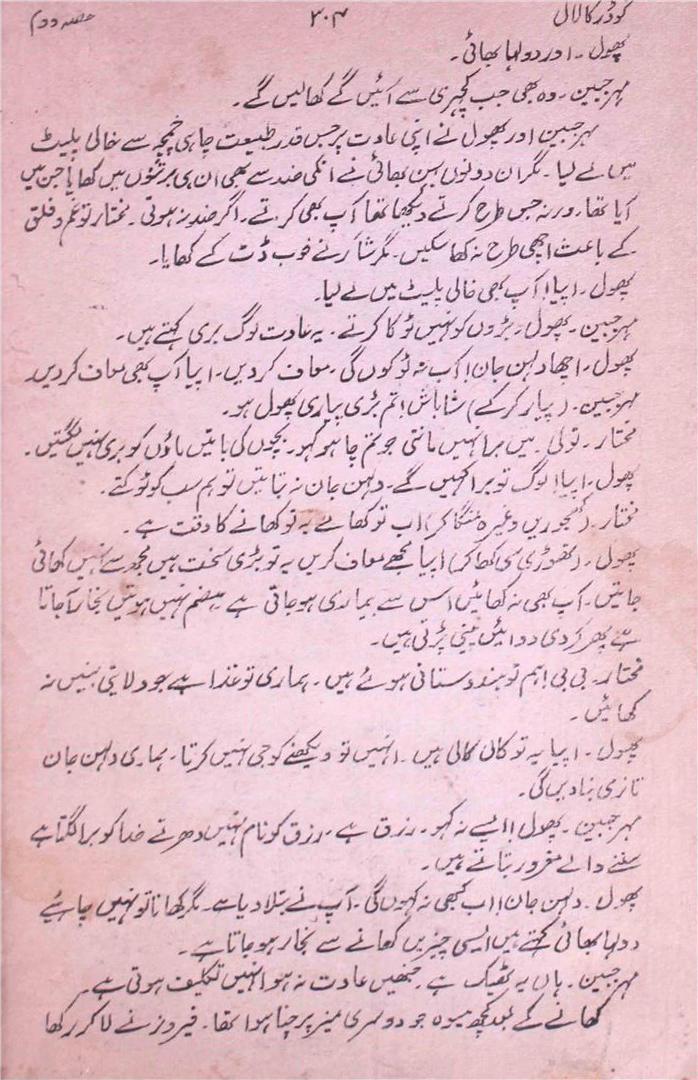 گودڑ کا لال ۳۰۴ حصہ دوم
پھول۔ اور دولہا بھائی۔
مہرجبین۔ وہ بھی جب کچہری سے آئیں گے کھالیں گے۔
مہرجبین اور پھول نے اپنی عادت پر جس قدر طبیعت چاہی چمچہ سے خالی پلیٹ
میں لے لیا۔ مگر ان دونوں بہن بھائی نے انکی ضد سے بھی ان ہی برتنوں میں کھایا جن میں
آیا تھا۔ ورنہ جس طرح کرتے دیکھا تھا آپ بھی کرتے۔ اگر ضد نہ ہوتی۔ مختار تو غم و قلق
کے باعث اچھی طرح نہ کھا سکیں۔ مگر شاکر نے خوب ڈٹ کے کھایا۔
پھول۔ اپیا! آپ بھی خالی پلیٹ میں لے لیا۔
مہرجبین۔ پھول۔ بڑوں کو نہیں ٹوکا کرتے۔ یہ عادت لوگ بری کہتے ہیں۔
پھول۔ اچھا دلہن جان! اب نہ ٹوکوں گی۔ معاف کردیں۔ اپیا آپ بھی معاف کردیں۔
مہرجبین۔ (پیار کرکے) شاباش! تم بڑی پیاری پھول ہو۔
مختار۔ تولی۔ میں برا نہیں مانتی جو تم چاہو کہو۔ بچوں کی باتیں ماؤں کو بری نہیں لگتیں۔
پھول۔ اپیا! لوگ تو برا کہیں گے۔ دلہن جان نہ بتاتیں تو ہم سب کو ٹوکتے۔
مختار۔ (کھجوریں وغیرہ منگا کر) اب تو کھایئے یہ تو کھانے کا وقت ہے۔
پھول۔ (تھوڑی سی کھا کر) اپیا مجھے معاف کریں یہ تو بڑی سخت ہیں مجھ سے نہیں کھائی
جاتیں۔ آپ بھی نہ کھائیں اس سے بیماری ہو جاتی ہے ہضم نہیں ہوتیں بخار آجاتا
ہے پھر کڑوی دوائیں پینی پڑتی ہیں۔
مختار۔ بی بی! ہم تو ہندوستانی ہوئے ہیں۔ ہماری تو غذا ہے جو ولایتی ہیں نہ
کھائیں۔
پھول۔ اپیا یہ تو کالی کالی ہیں۔ انہیں تو دیکھنے کو جی نہیں کرتا۔ ہماری دلہن جان
تازی بنا دیں گی۔
مہرجبین۔ پھول! ایسے نہ کہو۔ رزق ہے۔ رزق کو نام نہیں دھرتے خدا کو برا لگتا ہے
سننے والے مغرور بتاتے ہیں۔
پھول۔ دلہن جان! اب کبھی نہ کہوں گی۔ آپ نے بتلا دیا ہے۔ مگر کھانا تو نہیں چاہیے
دولہا بھائی کہتے ہیں ایسی چیزیں کھانے سے بخار ہو جاتا ہے۔
مہرجبین۔ ہاں یہ ٹھیک ہے۔ جنھیں عادت نہ ہو انہیں تکلیف ہوتی ہے۔
کھانے کے بعد کچھ میوہ جو دوسری میز پر چنا ہوا تھا۔ فیروز نے لاکر رکھا